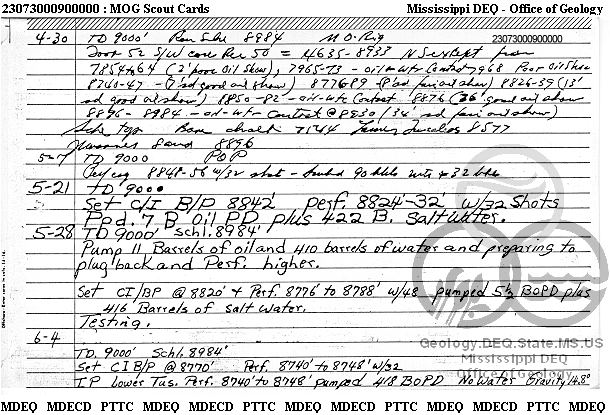 23073000900000 : MOG Scout Cards Mississippi DEQ - Office of Geology
4-30 TD 9000' Ran Schl 8984 M.O. Rig 23073000900000
52 S/W core Rec 50 = 4635-8933 N S except from
7854 to 64 (2' poor oil show), 7965-73 - oil-wtr contact 7968 Poor oil show
8740-47 - (7' sd good oil show) 8776-89 - 8' sd fair oil show) 8826-39 (13'
sd good oil show) 8850-82 - oil-wtr contact 8876 (26' good oil show
8896 - 8984 - oil-wtr contact @ 8930 (34' sd fair oil show)
Schl Tops Base chalk 7144 Lower Tuscaloosa 8577
8896
5-7 TD 9000 POP
Perf csg 8848-56 w/32 shots - 90 bbls wtr
5-21 TD 9000
Set C/I B/P 8842' perf. 8824'-32' w/32 shots
Ppd. 7 B oil PD plus 422 B. salt water.
5-28 TD 9000' Schl. 8984'
Pump 11 Barrels of oil and 410 barrels of water and preparing to
plug back and Perf. higher.
Set CI/BP @ 8820' & Perf. 8776' to 8788' w/48 pumped 5½ BOPD plus
416 Barrels of salt water.
Testing.
6-4
TD. 9000' Schl. 8984'
Set CIB/P @ 8770' Perf. 8740' to 8748' w/32
IP Lower Tus. Perf. 8740' to 8748' pumped 418 BOPD No Water Gravity 14.8°
Geology.DEQ.State.MS.US
Mississippi DEQ
Office of Geology
MDEQ MDECD PTTC MDEQ MDECD PTTC MDEQ MDECD PTTC MDEQ MDECD PTTC MDEQ